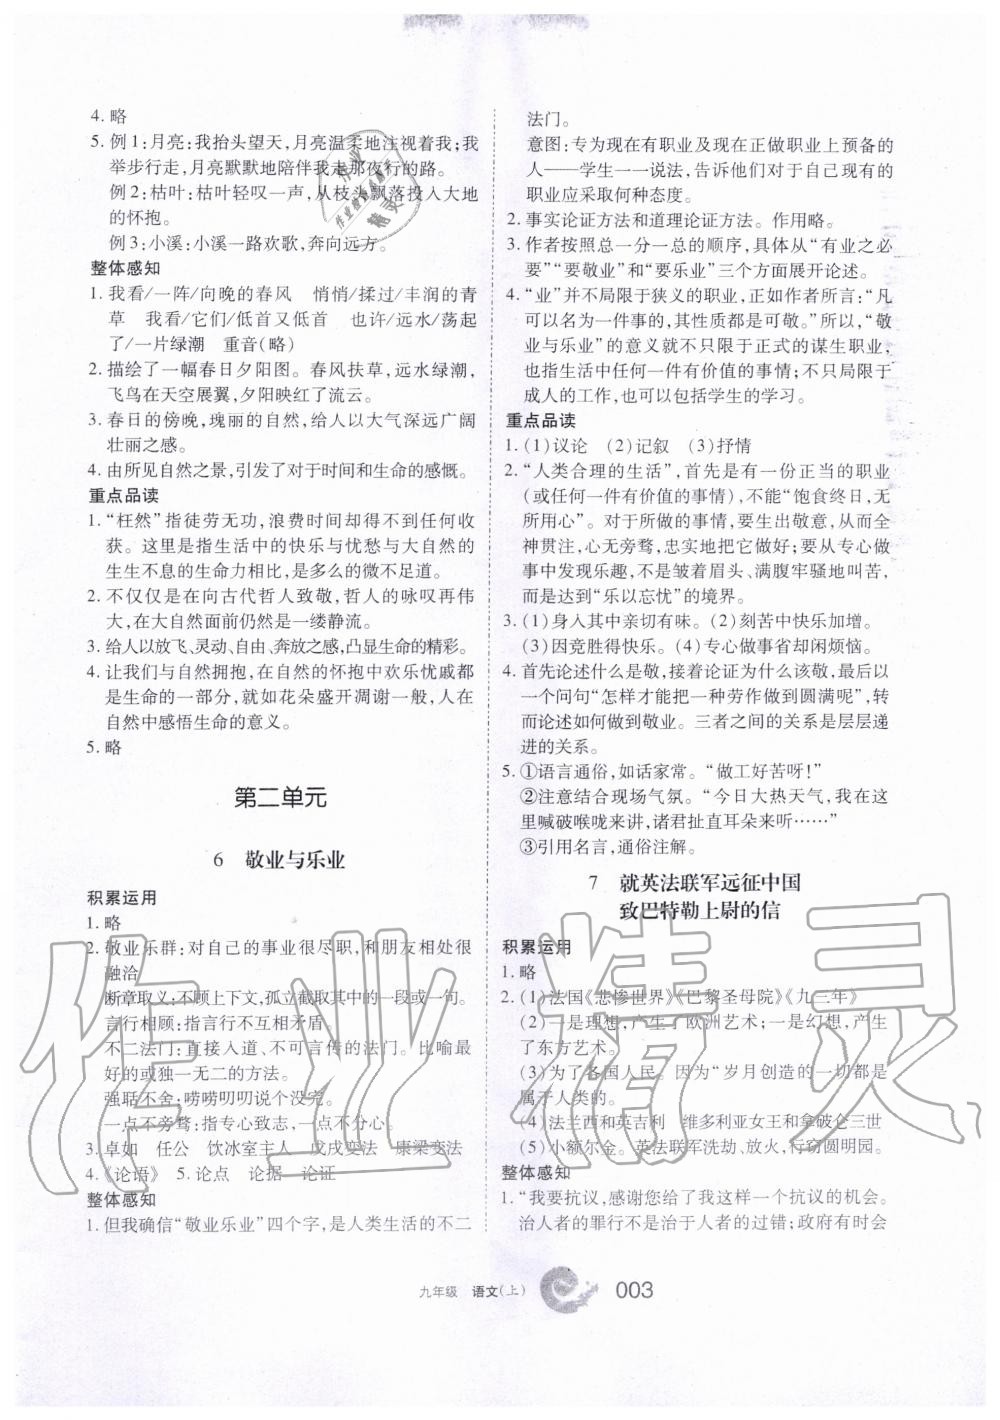 4. 略
5. 例 1:月亮:我抬头望天,月亮温柔地注视着我;我
举步行走,月亮默默地陪伴我走那夜行的路。
例 2:枯叶:枯叶轻叹一声,从枝头飘落投入大地
的怀抱。
例 3:小溪:小溪一路欢歌,奔向远方。
整体感知
1. 我看/一阵/向晚的春风 悄悄/揉过/丰润的青
草 我看/它们/低首又低首 也许/远水/荡起
了/一片绿潮 重音(略)
2. 描绘了一幅春日夕阳图。春风扶草,远水绿潮,
飞鸟在天空展翼,夕阳映红了流云。
3. 春日的傍晚,瑰丽的自然,给人以大气深远广阔
壮丽之感。
4. 由所见自然之景,引发了对于时间和生命的感慨。
重点品读
1. “枉然”指徒劳无功,浪费时间却得不到任何收
获。这里是指生活中的快乐与忧愁与大自然的
生生不息的生命力相比,是多么的微不足道。
2. 不仅仅是在向古代哲人致敬,哲人的咏叹再伟
大,在大自然面前仍然是一缕静流。
3. 给人以放飞、灵动、自由、奔放之感,凸显生命的精彩。
4. 让我们与自然拥抱,在自然的怀抱中欢乐忧戚都
是生命的一部分,就如花朵盛开凋谢一般,人在
自然中感悟生命的意义。
5. 略
第二单元
6 敬业与乐业
积累运用
1. 略
2. 敬业乐群:对自己的事业很尽职,和朋友相处很
融洽
断章取义:不顾上下文,孤立截取其中的一段或一句。
言行相顾:指言行不互相矛盾。
不二法门:直接入道、不可言传的法门。比喻最
好的或独一无二的方法。
强聒不舍:唠唠叨叨说个没完。
一点不旁骛:指专心致志,一点不分心。
3. 卓如 任公 饮冰室主人 戊戌变法 康梁变法
4.《论语》 5. 论点 论据 论证
整体感知
1. 但我确信“敬业乐业”四个字,是人类生活的不二
法门。
意图:专为现在有职业及现在正做职业上预备的
人——学生——说法,告诉他们对于自己现有的
职业应采取何种态度。
2. 事实论证方法和道理论证方法。作用略。
3. 作者按照总一分一总的顺序,具体从“有业之必
要”“要敬业”和“要乐业”三个方面展开论述。
4. “业”并不局限于狭义的职业,正如作者所言:“凡
可以名为一件事的,其性质都是可敬。”所以,“敬
业与乐业”的意义就不只限于正式的谋生职业,
也指生活中任何一件有价值的事情;不只局限于
成人的工作,也可以包括学生的学习。
重点品读
1. (1)议论 (2)记叙 (3)抒情
2. “人类合理的生活”,首先是有一份正当的职业
(或任何一件有价值的事情),不能“饱食终日,无
所用心”。对于所做的事情,要生出敬意,从而全
神贯注,心无旁骛,忠实地把它做好;要从专心做
事中发现乐趣,不是皱着眉头、满腹牢骚地叫苦,
而是达到“乐以忘忧”的境界。
3. (1)身入其中亲切有味。(2)刻苦中快乐加增。
(3)因竞胜得快乐。(4)专心做事省却闲烦恼。
4. 首先论述什么是敬,接着论证为什么该敬,最后以
一个问句“怎样才能把一种劳作做到圆满呢”,转
而论述如何做到敬业。三者之间的关系是层层递
进的关系。
5. ①语言通俗,如话家常。“做工好苦呀!”
②注意结合现场气氛。“今日大热天气,我在这
里喊破喉咙来讲,诸君扯直耳朵来听……”
③引用名言,通俗注解。
7 就英法联军远征中国
致巴特勒上尉的信
积累运用
1. 略
2. (1)法国《悲惨世界》《巴黎圣母院》《九三年》
(2)一是理想,产生了欧洲艺术;一是幻想,产生
了东方艺术。
(3)为了各国人民。因为“岁月创造的一切都是
属于人类的。
(4)法兰西和英吉利 维多利亚女王和拿破仑三世
(5)小额尔金。英法联军洗劫、放火,行窃圆明园。
整体感知
1. “我要抗议,感谢您给了我这样一个抗议的机会。
治人者的罪行不是治于人者的过错;政府有时会
九年级 语文(上) 003
作业精灵